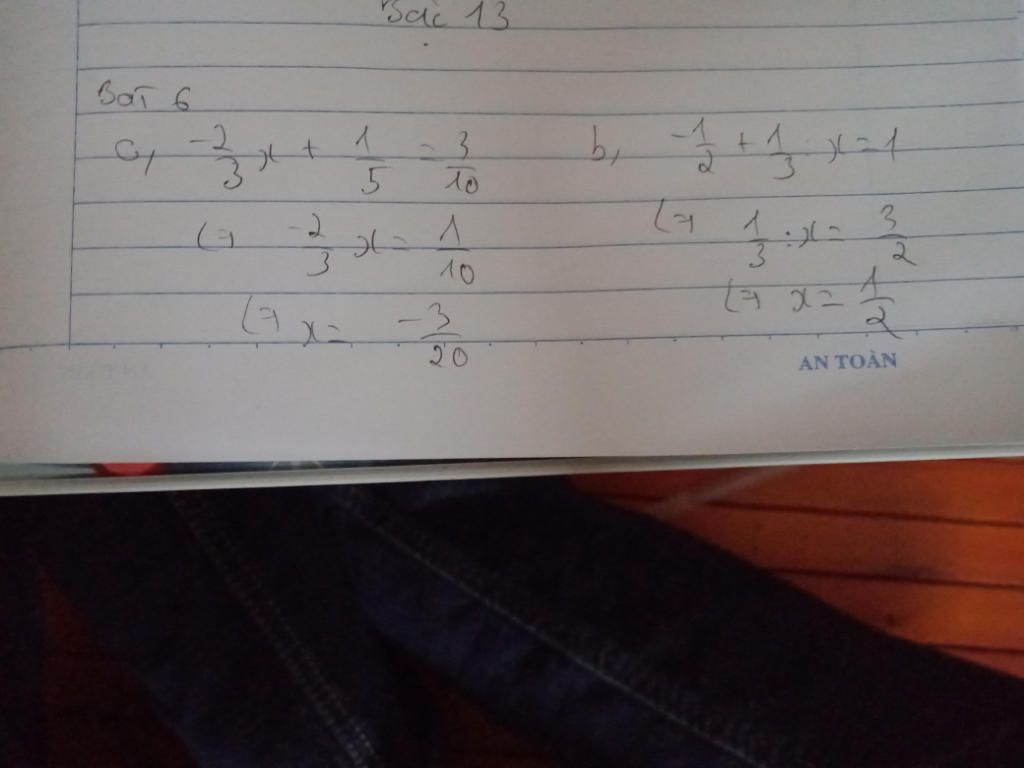 Bài 13
Bài 6
a, -2/3 x + 1/5 = 3/10
(=) -2/3 x = 1/10
(=) x = -3/20
b, -1/2 + 1/3 : x = 1
(=) 1/3 : x = 3/2
(=) x = 1/2
AN TOÀN